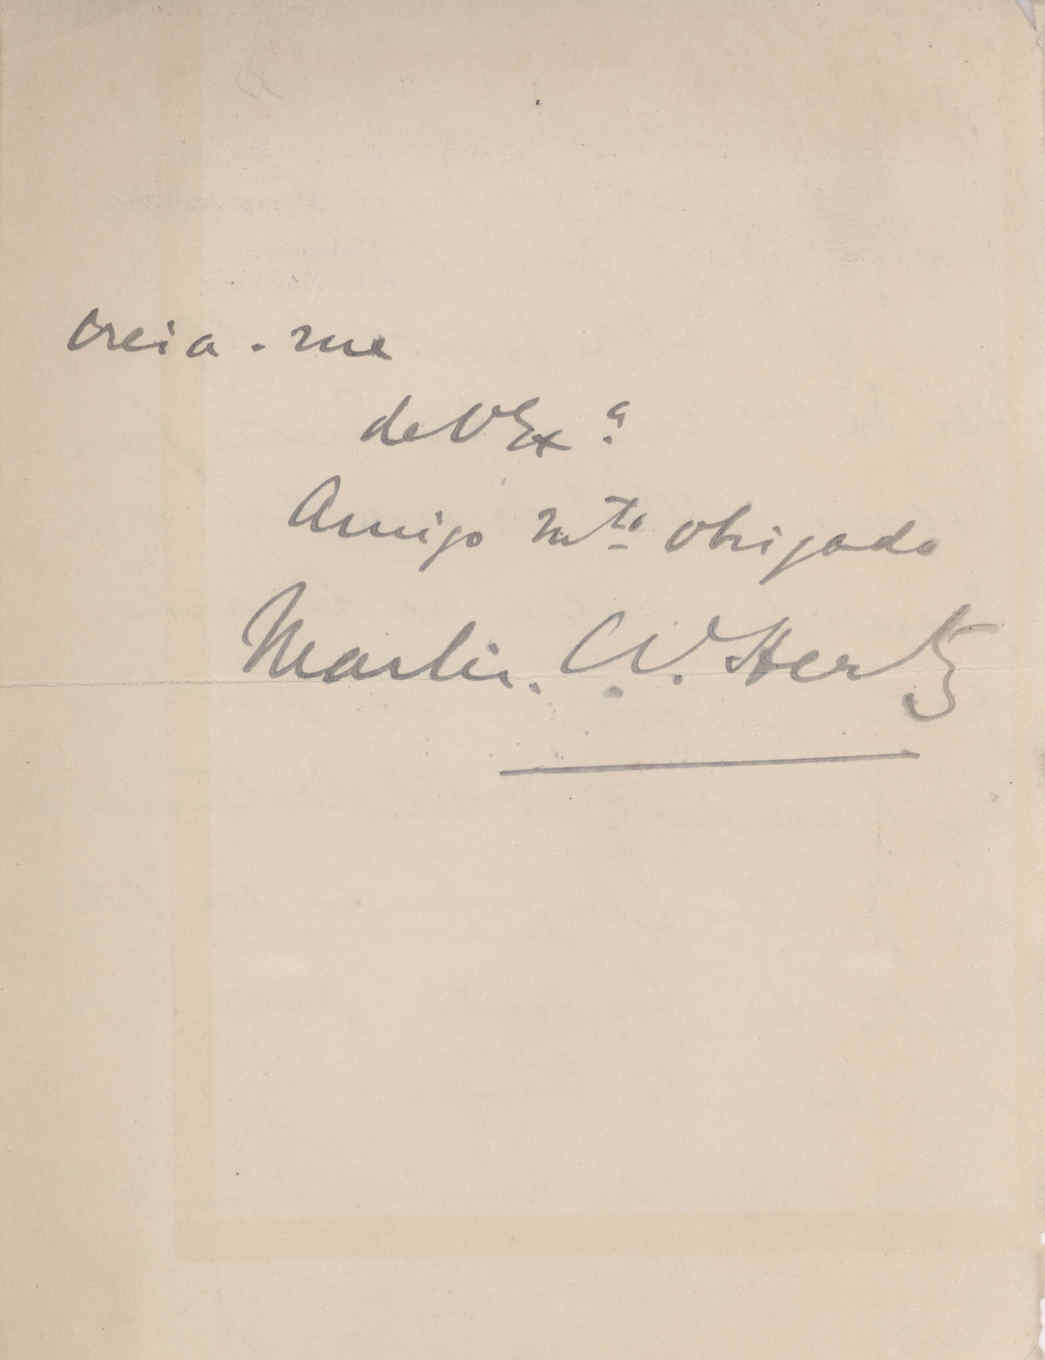 Creia-me
de V Exª
Amigo mto obrigado
Martin. W. Hertz